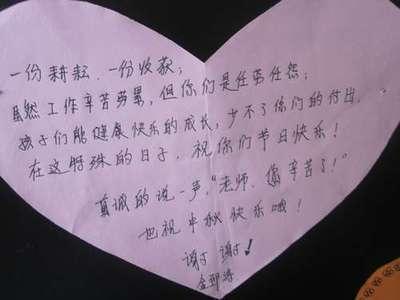 一份耕耘、一份收获；
虽然工作辛苦劳累，但你们是任劳任怨；
孩子们能健康快乐的成长，少不了你们的付出，
在这特殊的日子，祝你们节日快乐！
真诚的说一声，“老师，您辛苦了！”
也祝中秋快乐哦！
谢谢！